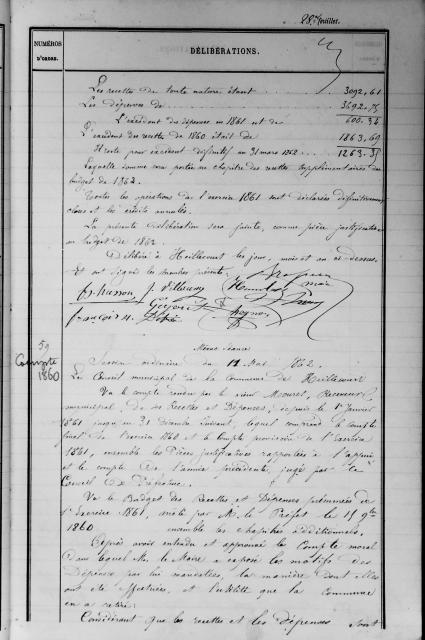 28e feuillet.
NUMÉROS D'ORDRE.
DÉLIBÉRATIONS.
Les recettes de toute nature étant 3092,61
Les dépenses de 3692,75
L'excédent des dépenses en 1861 est de 600.34
L'excédent des recettes de 1860 était de 1863,69
Il reste pour excédent définitif au 31 mars 1862 1263.35
Laquelle somme sera portée au chapitre des recettes supplémentaires du
budget de 1862.
Toutes les opérations de l'exercice 1861 sont déclarées définitivement
closes et les crédits annulés.
La présente délibération sera jointe, comme pièce justificative
au budget de 1862
Délibéré à Heillecourt les jour, mois et an ci-dessus.
Et ont signés les membres présents
59
Compte
1860
Même séance
Session ordinaire du 12 Mai 1862.
Le Conseil municipal de la Commune de Heillecourt
Vu le compte rendu par le sieur Receveur
municipal, de des Recettes et Dépenses, depuis le 1er Janvier
1861 jusqu'au 31 Décembre suivant, lequel comprend le compte
final de l'exercice 1860 et le compte provisoire de l'exercice
1861, ensemble les Pièces justificatives rapportées à l'appui
et le compte de l'année précédente, jugé par le
Conseil de Préfecture.
Vu le Budget des Recettes et Dépenses présumées de
l'exercice 1861, arrêté par M. le Préfet le 15 9bre
1860 ensemble les chapitres additionnels,
Après avoir entendu et approuvé le Compte moral
dans lequel M. le Maire a exposé les motifs des
Dépenses par lui mandatées, la manière dont elles
ont été effectuées, et l'utilité que la commune
en a retiré
Considérant que les recettes et les dépenses sont